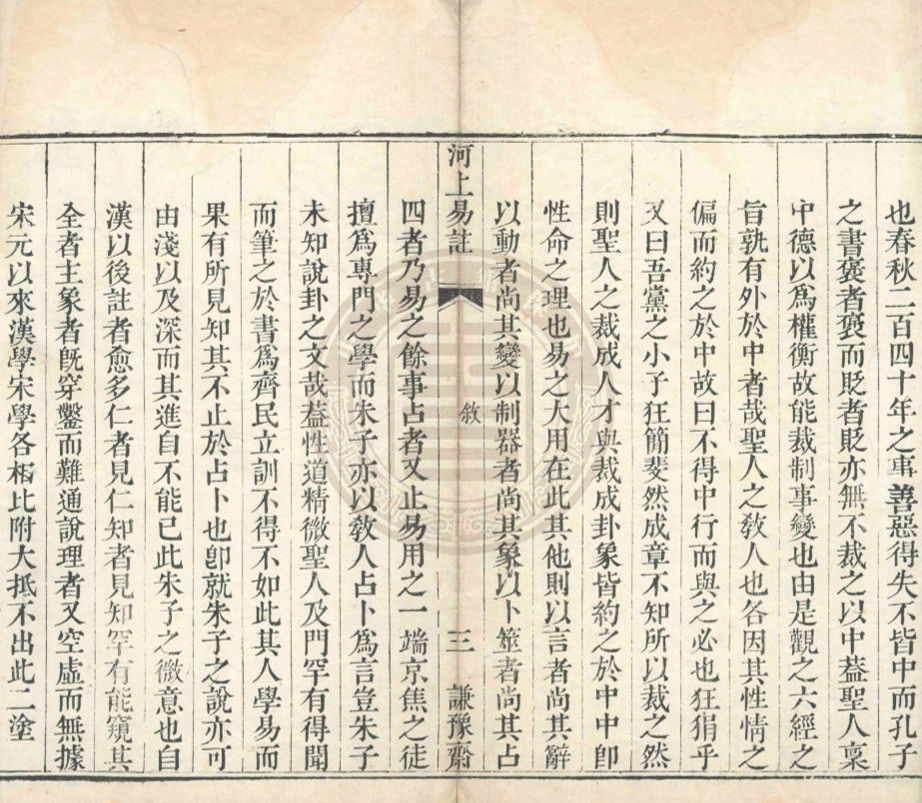 也春秋二百四十年之事善惡得失不皆中而孔子
之書褒者褒而貶者貶亦無不裁之以中葢聖人稟
中德以爲權衡故能裁制事變也由是觀之六經之
旨孰有外於中者哉聖人之敎人也各因其性情之
偏而約之於中故曰不得中行而與之必也狂狷乎
又曰吾黨之小子狂簡斐然成章不知所以裁之然
則聖人之裁成人才與裁成卦象皆約之於中中卽
性命之理也易之大用在此其他則以言者尚其辭
以動者尚其變以制器者尚其象以卜筮者尚其占
河上易註
敘
三
謙豫齋
四者乃易之餘事占者又止易用之一端京焦之徒
擅爲專門之學而朱子亦以敎人占卜爲言豈朱子
未知說卦之文哉葢性道精微聖人及門罕有得聞
而筆之於書爲齊民立訓不得不如此其人學易而
果有所見知其不止於占卜也卽就朱子之說亦可
由淺以及深而其進自不能已此朱子之微意也自
漢以後註者愈多仁者見仁知者見知罕有能窺其
全者主象者旣穿鑿而難通說理者又空虛而無據
宋元以來漢學宋學各相比附大抵不出此二塗